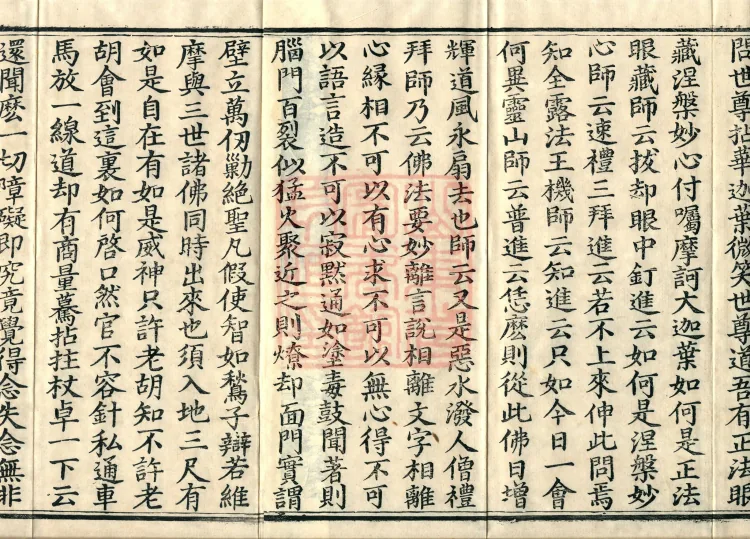 問世尊拈華迦葉微笑世尊道吾有正法眼
藏涅槃妙心付囑摩訶大迦葉如何是正法
眼藏師云拔却眼中釘進云如何是涅槃妙
心師云速禮三拜進云若不上來伸此問焉
知全露法王機師云知進云只如今日一會
何異靈山師云普進云恁麽則從此佛日增
輝道風永扇去也師云又是惡水潑人僧禮
拜師乃云佛法要妙離言說相離文字相離
心緣相不可以有心求不可以無心得不可
以語言造不可以寂默通如塗毒鼓聞著則
腦門百裂似猛火聚近之則燎却面門實謂
壁立萬仞勦絕聖凡假使智如鶖子辯若維
摩與三世諸佛同時出來也須入地三尺有
如是自在有如是威神只許老胡知不許老
胡會到這裏如何啓口然官不容針私通車
馬放一線道却有商量驀拈拄杖卓一下云
還聞麽一切障礙即究竟覺得念失念無非